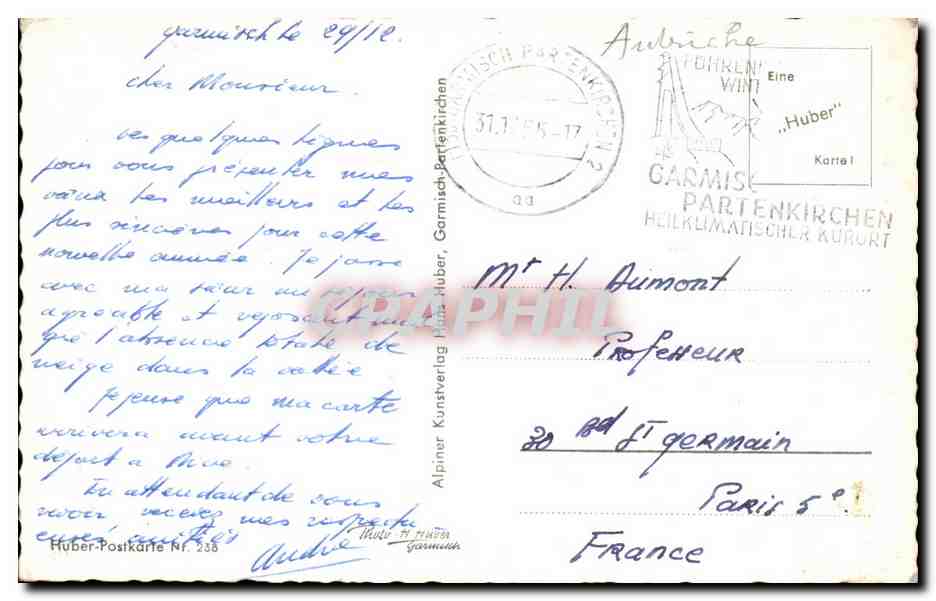 garmisch le 29/12.
cher Monsieur.
ces quelques lignes
pour vous présenter mes
vœux les meilleurs et les
plus sincères pour cette
nouvelle année. Je passe
avec ma sœur un séjour
agréable et reposant
que l'absence totale de
neige dans la vallée
Je pense que ma carte
arrivera avant votre
départ à Nice.
En attendant de vous
revoir recevez mes respectu
euses amitiés
André
Huber-Postkarte Nr. 238
Photo H. Huber
Garmisch
Alpiner Kunstverlag Hans Huber, Garmisch-Partenkirchen
GARMISCH PARTENKIRCHEN 2
aa
Autriche
FÜHREN
WINT
GARMISC
PARTENKIRCHEN
HEILKLIMATISCHER KURORT
Eine
„Huber"
Karte!
Mr H. Aumont
Professeur
30 Bd St germain
Paris 5e
France
CPAPHIL